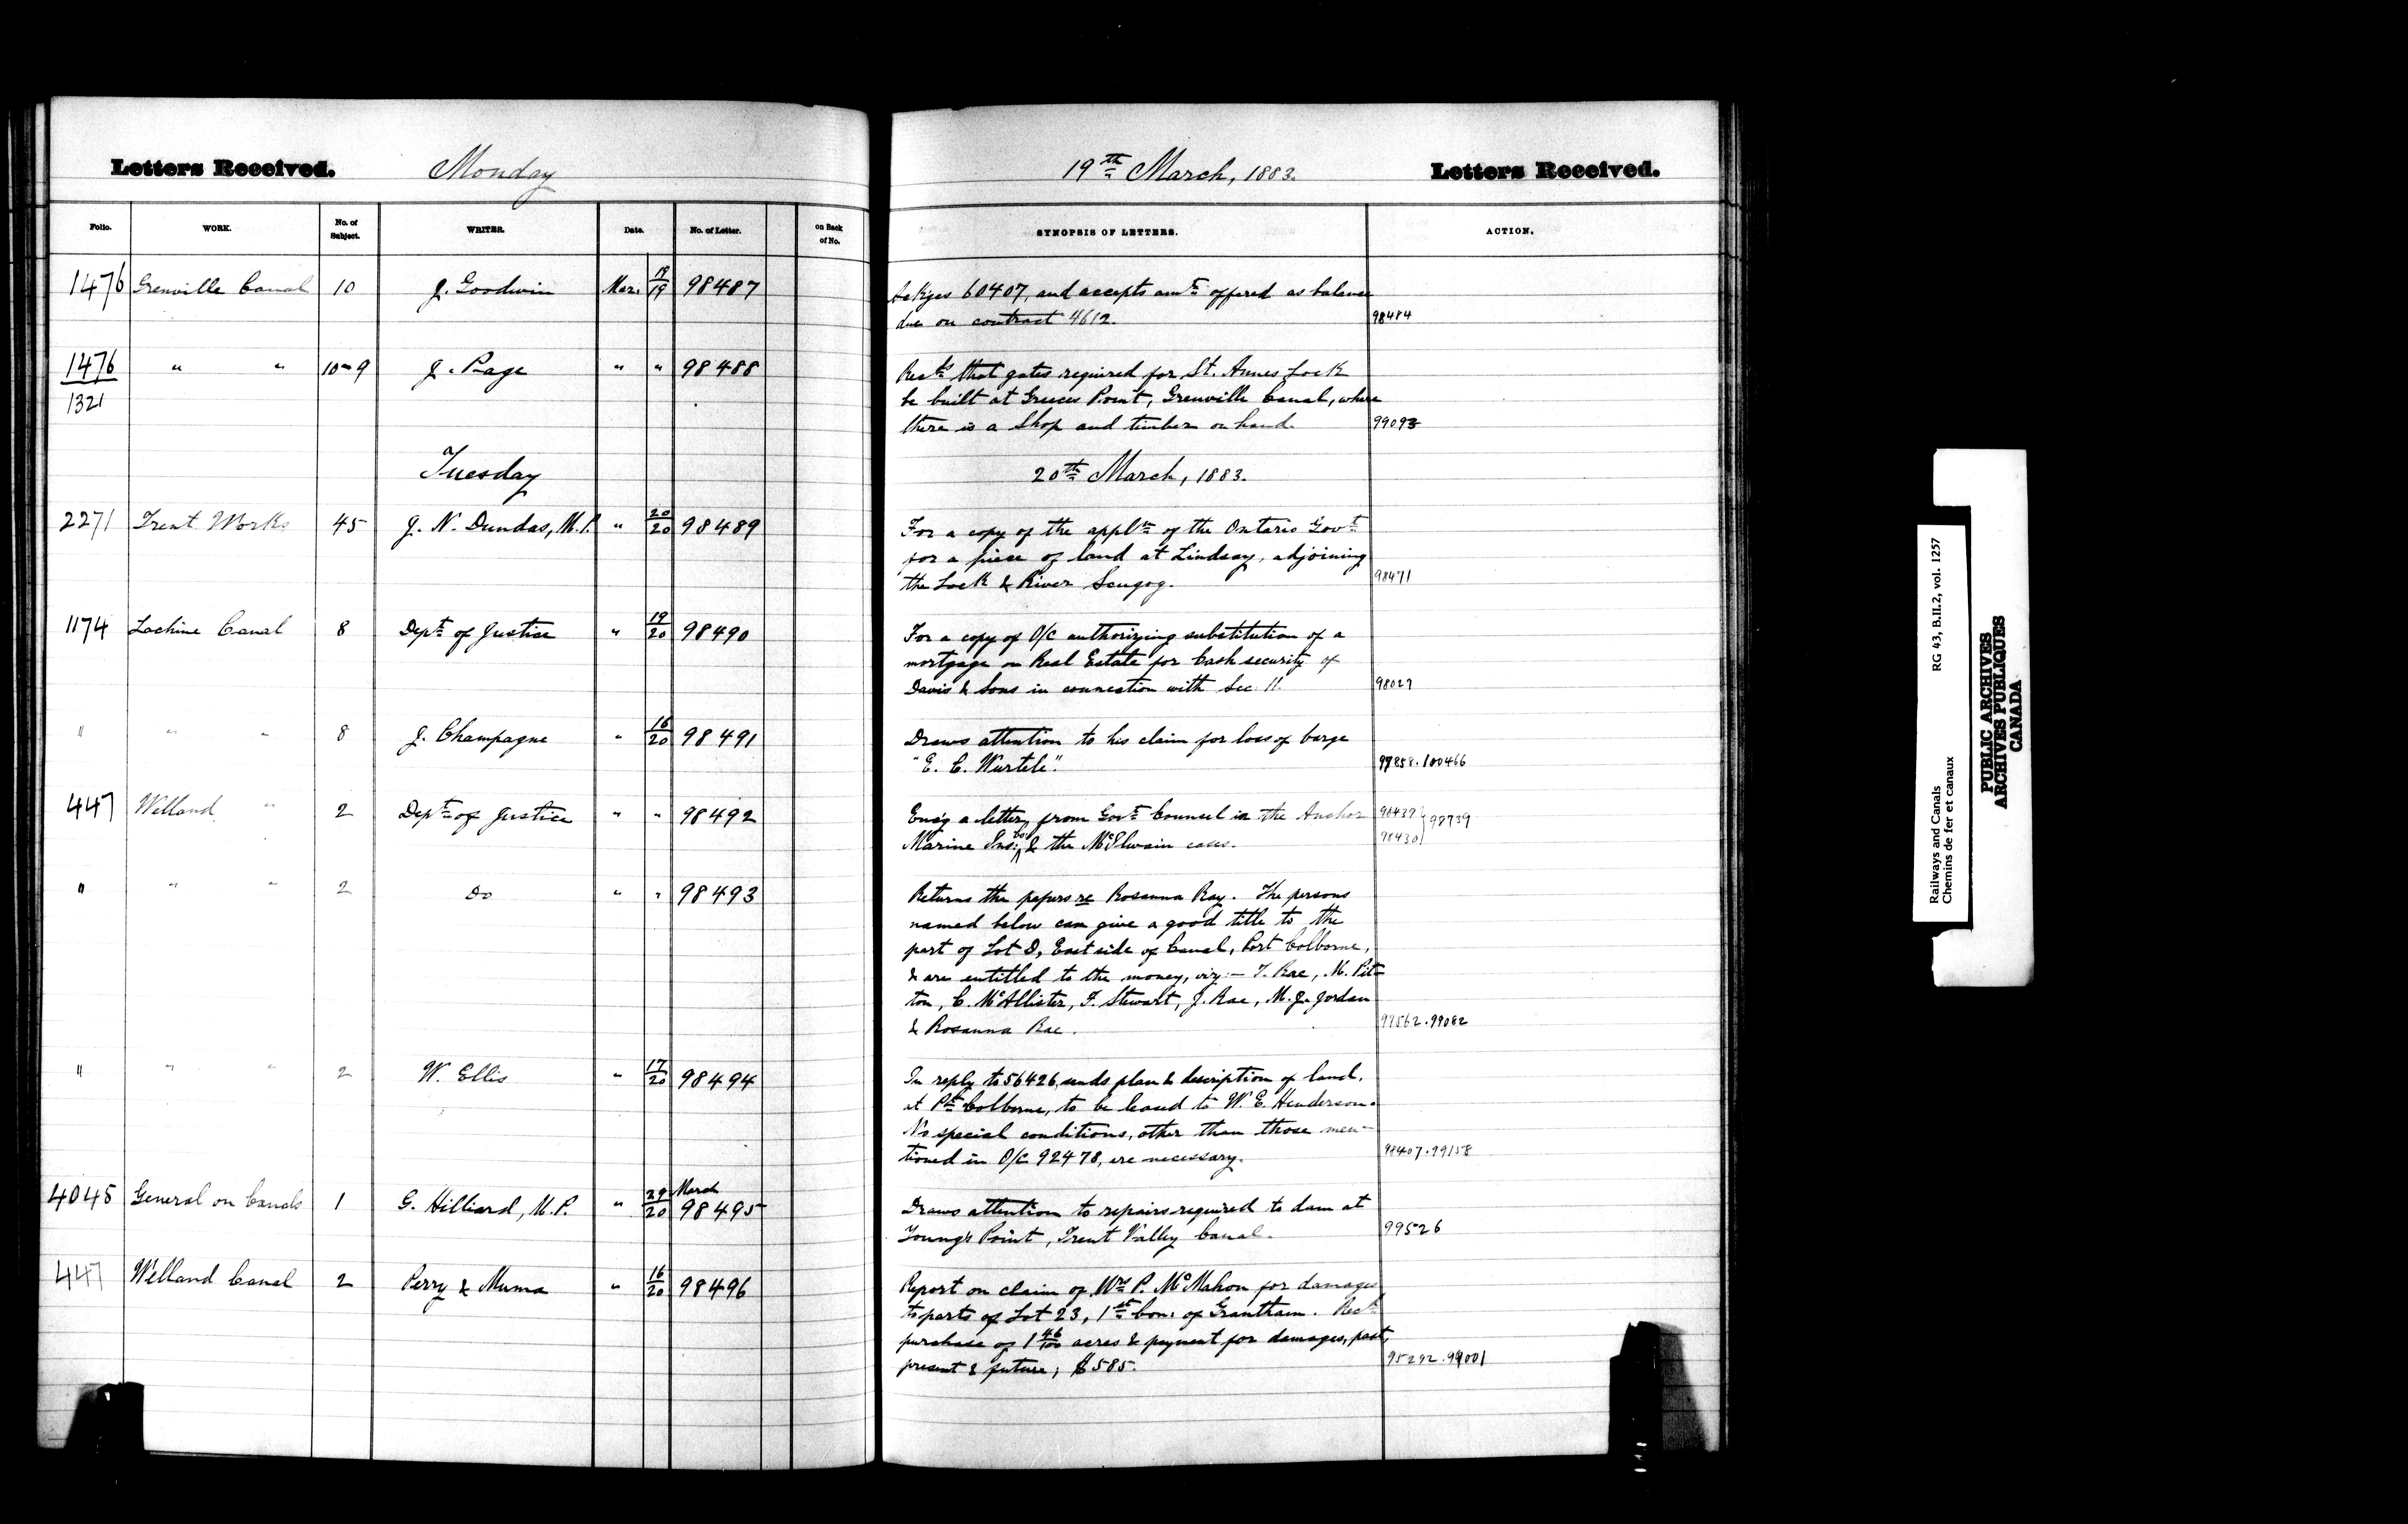 Letters Received. Monday
19th March, 1883. Letters Received.
Folio. WORK. No. of Subject. WRITER. Date. No. of Letter. on Back of No. SYNOPSIS OF LETTERS. ACTION.
1476 Grenville Canal 10 J. Goodwin Mar. 19/19 98487
Ackges 60407, and accepts amt offered as balance
due on contract 4612. 98484
1476 " " 10-9 J. Page " " 98488
1321
Recds that gates required for St. Annes Lock
be built at Greeces Point, Grenville Canal, where
there is a Shop and timber on hand. 99093
Tuesday 20th March, 1883.
2271 Trent Works 45 J. N. Dundas, M.P. " 20/20 98489
For a copy of the appln of the Ontario Govt
for a piece of land at Lindsay, adjoining
the Lock & River Scugog. 98471
1174 Lachine Canal 8 Dept of Justice " 19/20 98490
For a copy of O/C authorizing substitution of a
mortgage on Real Estate for Cash security of
Davis & Sons in connection with Sec 11. 98027
" " " 8 J. Champagne " 16/20 98491
Draws attention to his claim for loss of barge
"E. C. Wurtele". 97858. 100466
447 Welland " 2 Dept of Justice " " 98492
Encg a letter from Govt Counsel in the Anchor 98439
Marine Ins: Co & the McIlwain cases. 98430 98739
" " " 2 Do " " 98493
Returns the papers re Rosanna Ray. The persons
named below can give a good title to the
part of Lot D, East side of Canal, Port Colborne,
& are entitled to the money, viz:— T. Rae, M. Pit-
ton, C. McAllister, F. Stewart, J. Rae, M. J. Jordan
& Rosanna Rae. 99562. 99082
" " " 2 W. Ellis " 17/20 98494
In reply to 56426, sends plan & description of land,
at Pt Colborne, to be leased to W. E. Henderson.
No special conditions, other than those men-
tioned in O/C 92478, are necessary. 98407. 99158
4045 General on Canals 1 G. Hilliard, M.P. " 29/20 March 98495
Draws attention to repairs required to dam at
Young's Point, Trent Valley Canal. 99526
447 Welland Canal 2 Perry & Muma " 16/20 98496
Report on claim of Mrs P. McMahon for damages
to parts of Lot 23, 1st Con: of Grantham. Recds
purchase of 1 46/100 acres & payment for damages, past,
present & future; $585. 95292. 99001
Railways and Canals RG 43, B.II.2, vol. 1257
Chemins de fer et canaux
PUBLIC ARCHIVES
ARCHIVES PUBLIQUES
CANADA